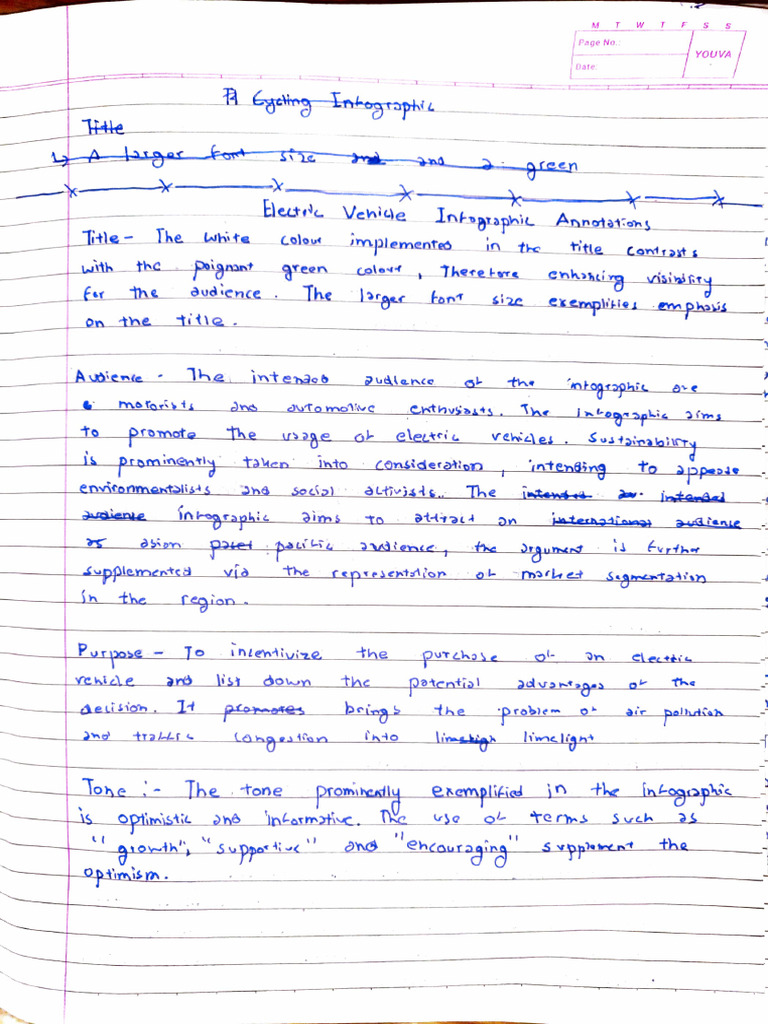 M T W T F S S
Page No.:
YOUVA
Date:
Cycling Infographic
Title
↳ A larger font size and and a green
Electric Vehicle Infographic Annotations
Title - The white colour implemented in the title contrasts
with the poignant green colour, Therefore enhancing visibility
for the audience. The larger font size exemplifies emphasis
on the title.
Audience - The intended audience of the infographic are
motorists and automotive enthusiasts. The infographic aims
to promote the usage of electric vehicles. Sustainability
is prominently taken into consideration, intending to appease
environmentalists and social activists. The intended intended
audience infographic aims to attract an international audience
as asian pacific audience, the argument is further
supplemented via the representation of market segmentation
in the region.
Purpose - To incentivize the purchase of an electric
vehicle and list down the potential advantages of the
decision. It promotes brings the problem of air pollution
and traffic congestion into limelight
Tone :- The tone prominently exemplified in the infographic
is optimistic and informative. The use of terms such as
"growth", "supportive" and "encouraging" supplement the
optimism.